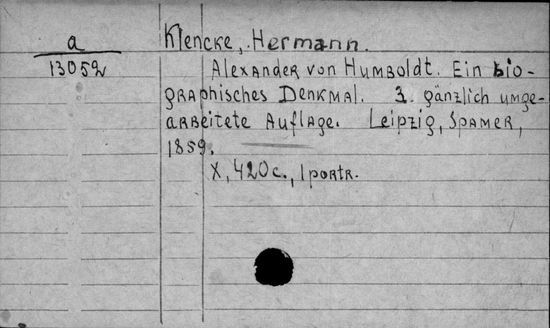 a
13052
Klencke, Hermann.
Alexander von Humboldt. Ein bio-
graphisches Denkmal. 3. gänzlich umge-
arbeitete Auflage. Leipzig, Spamer,
1859.
X, 420c., 1 portr.